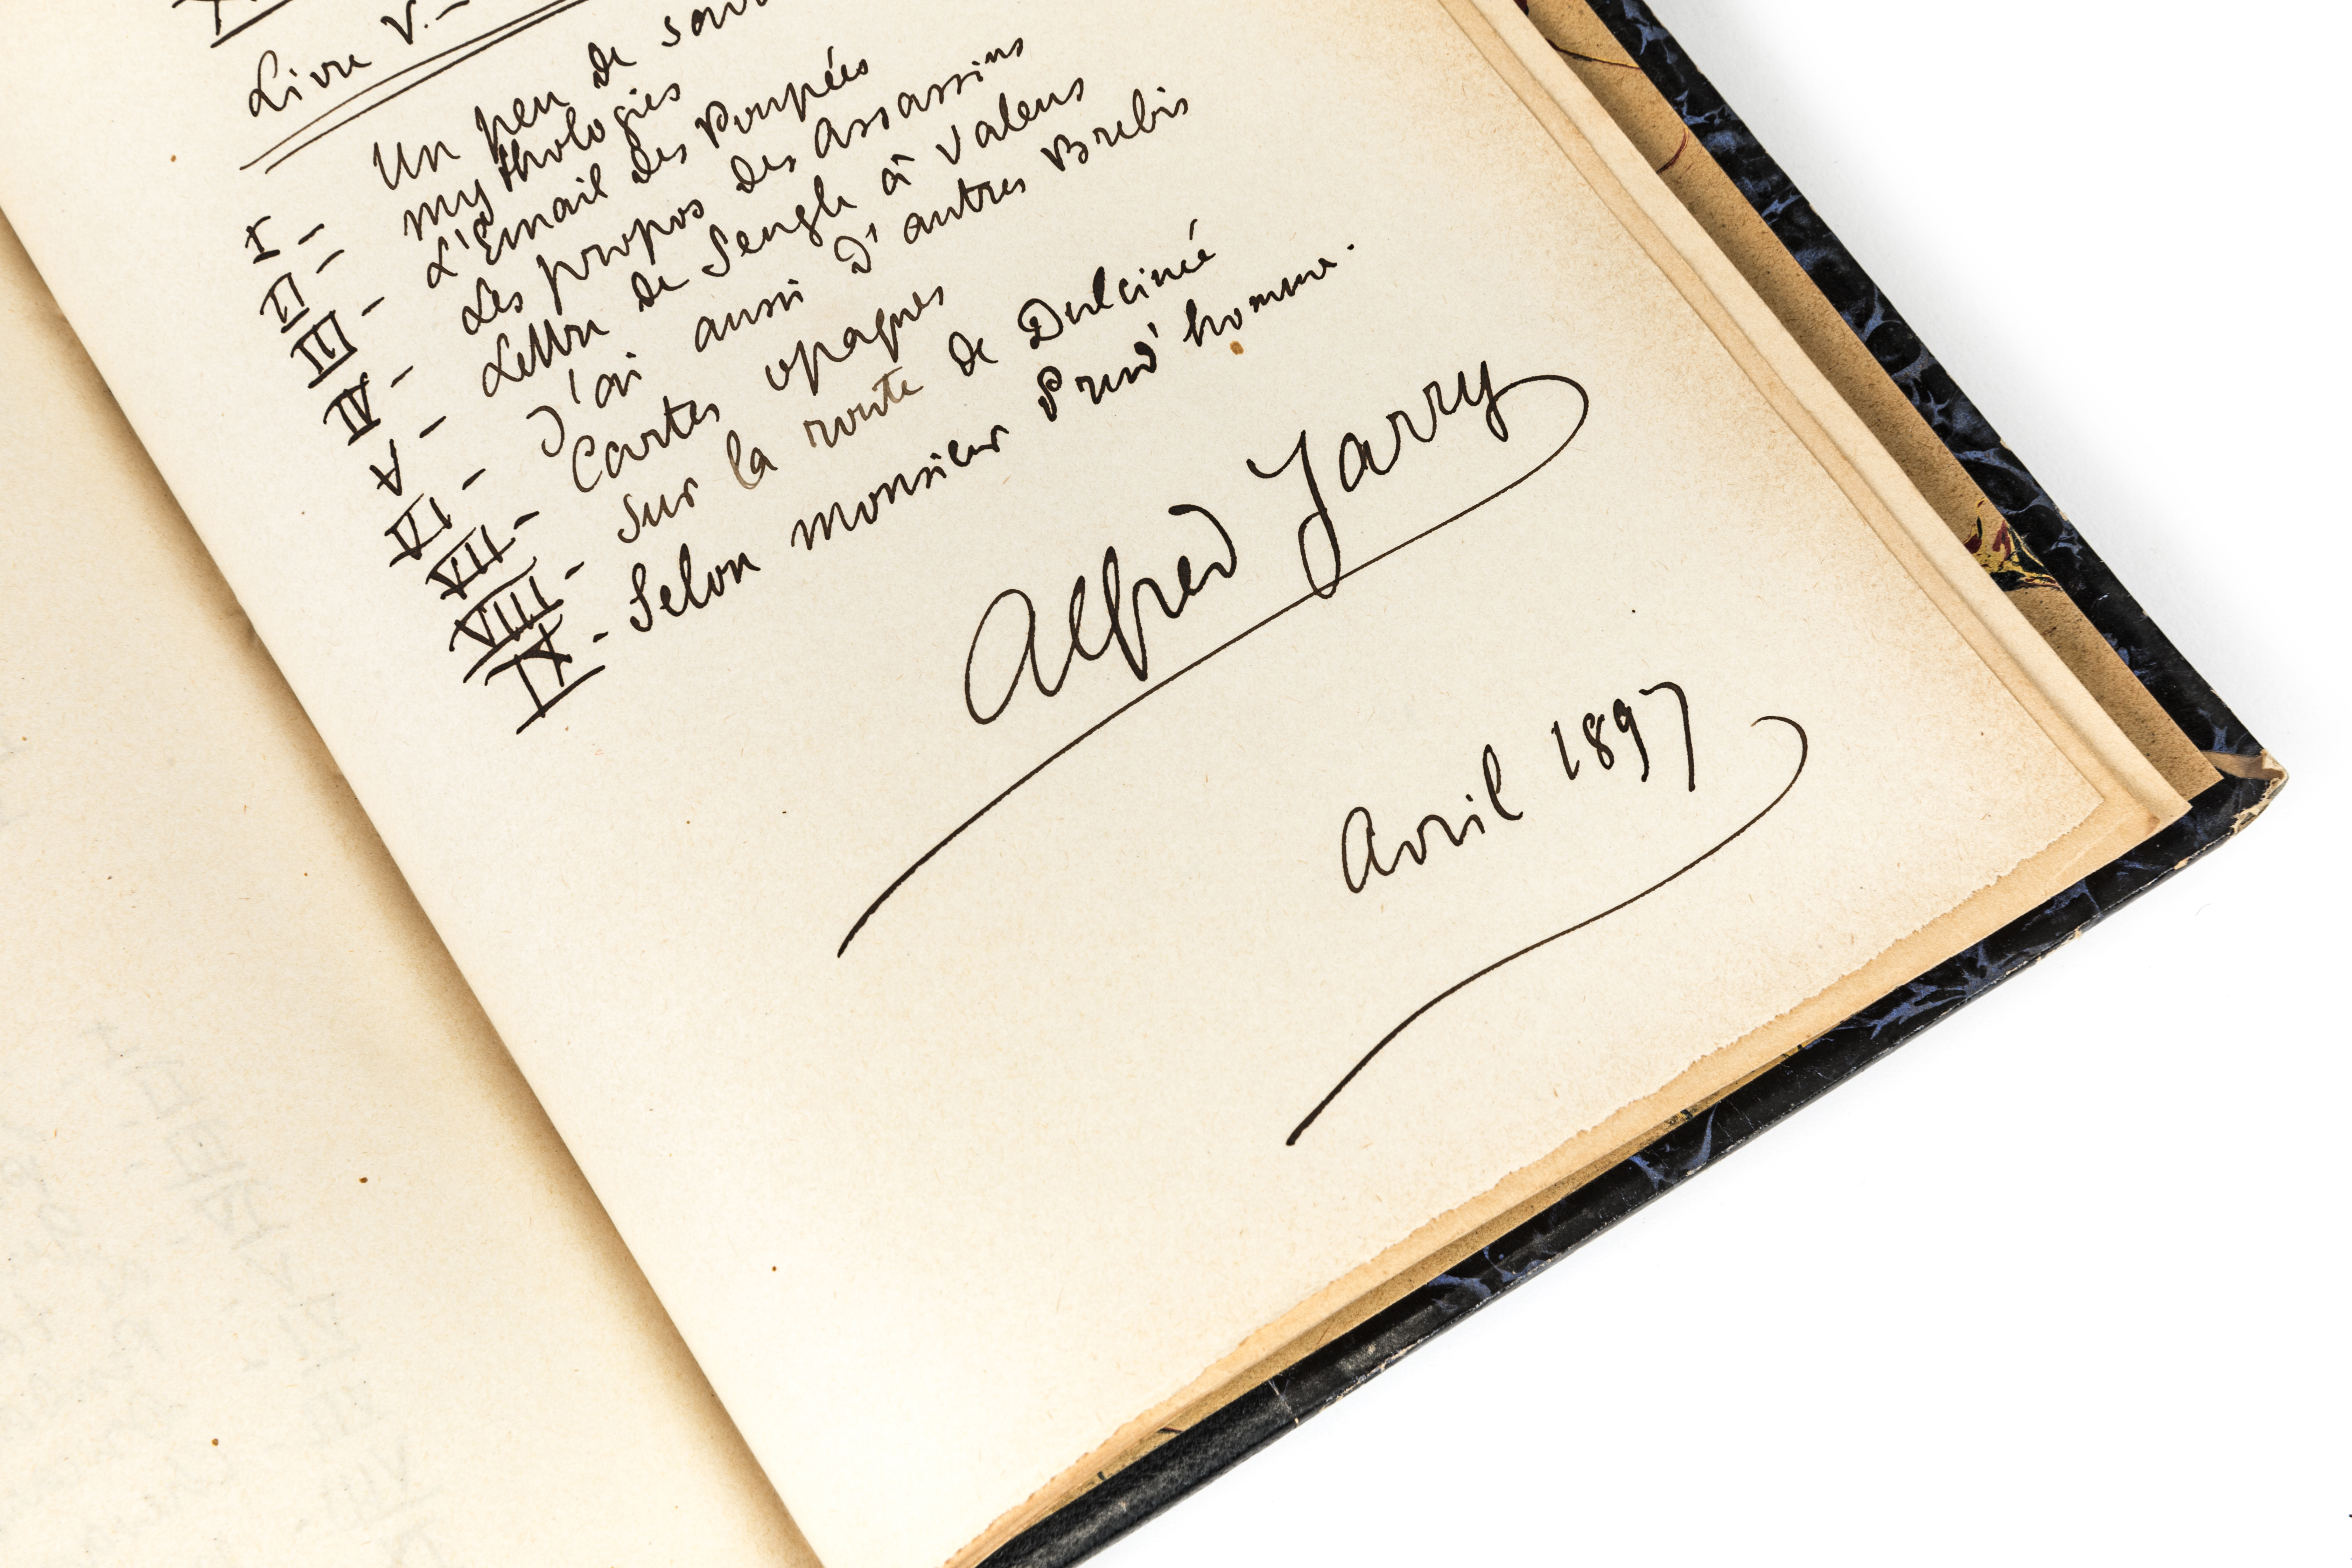 Livre V.-
Un peu de
I - mythologies
II - L'Email des Poupées
III - Les propos des Assassins
IV - Lettre de Sengle à Valens
V - J'ai aussi D'autres Brebis
VI - Cartes opaques
VII - Sur la route de Dulcinée
VIII - Selon monsieur Prud'homme.
IX -
Alfred Jarry
Avril 1897